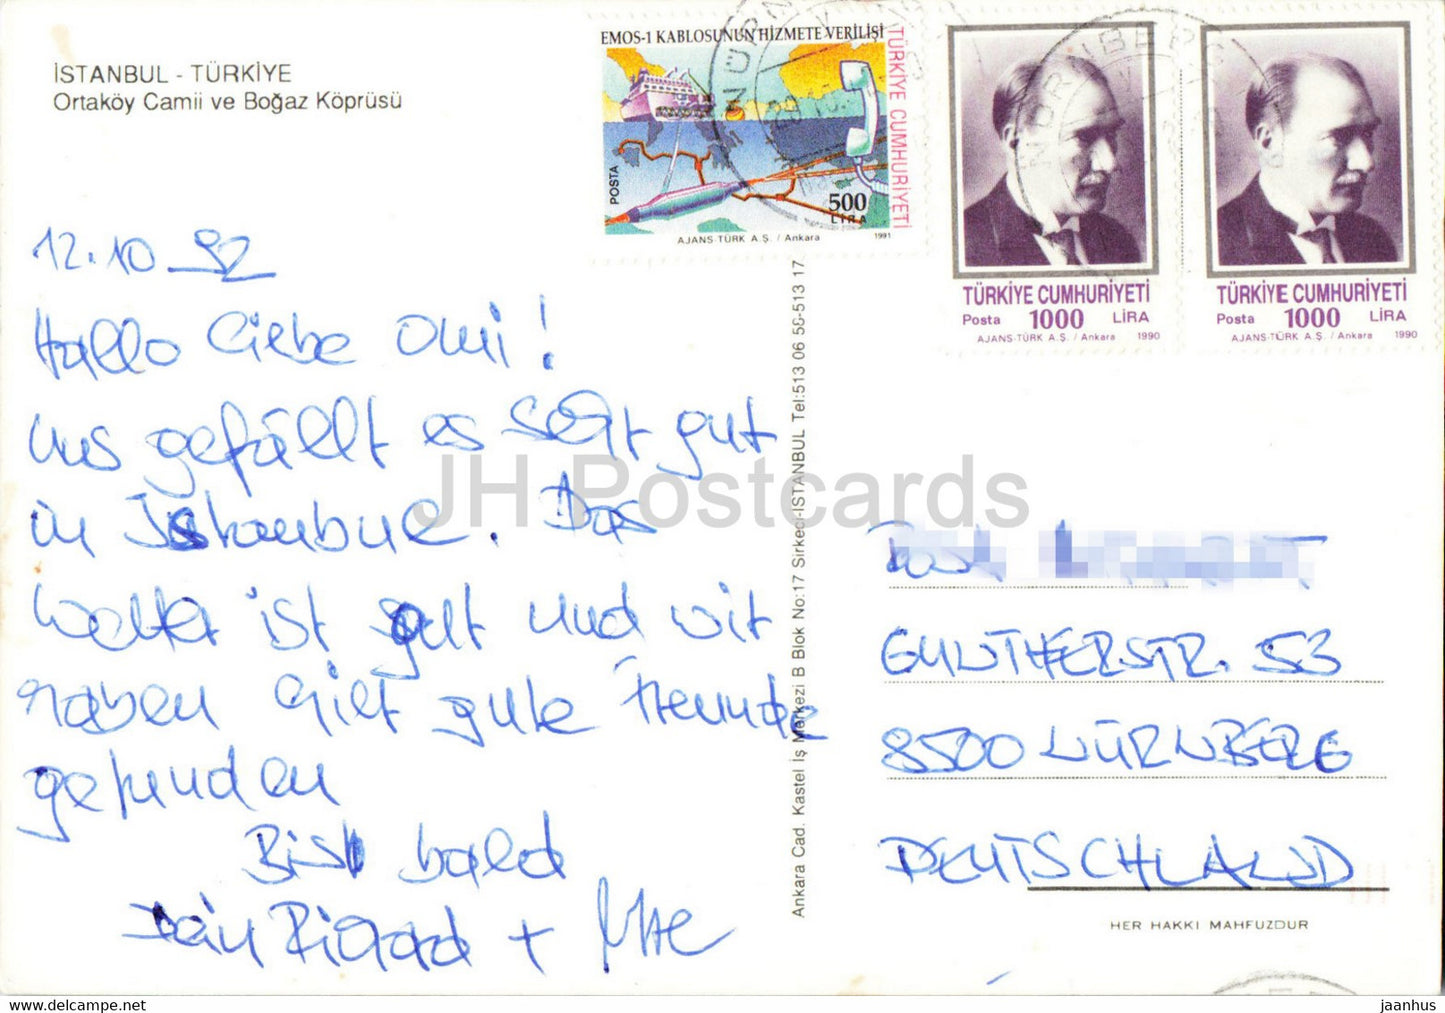 İSTANBUL - TÜRKİYE
Ortaköy Camii ve Boğaz Köprüsü
12.10 92
Hallo liebe Omi!
Uns gefällt es sehr gut
in Istanbul. Das
Wetter ist gut und wir
haben hier gute Freunde
gefunden
Bis bald
Dein Richard +
EMOS-1 KABLOSUNUN HİZMETE VERİLİŞİ
TÜRKİYE CUMHURİYETİ
POSTA
500
LİRA
AJANS-TÜRK A.Ş. / Ankara 1991
NÜRNBERG
TÜRKİYE CUMHURİYETİ
Posta 1000 LİRA
AJANS-TÜRK A.Ş. / Ankara 1990
TÜRKİYE CUMHURİYETİ
Posta 1000 LİRA
AJANS-TÜRK A.Ş. / Ankara 1990
Ankara Cad. Kastel İş Merkezi B Blok No:17 Sirkeci-İSTANBUL Tel:513 06 56-513 17
GUNTHERSTR. 53
8500 NÜRNBERG
DEUTSCHLAND
HER HAKKI MAHFUZDUR
JH Postcards
https://www.delcampe.net
jaanhus